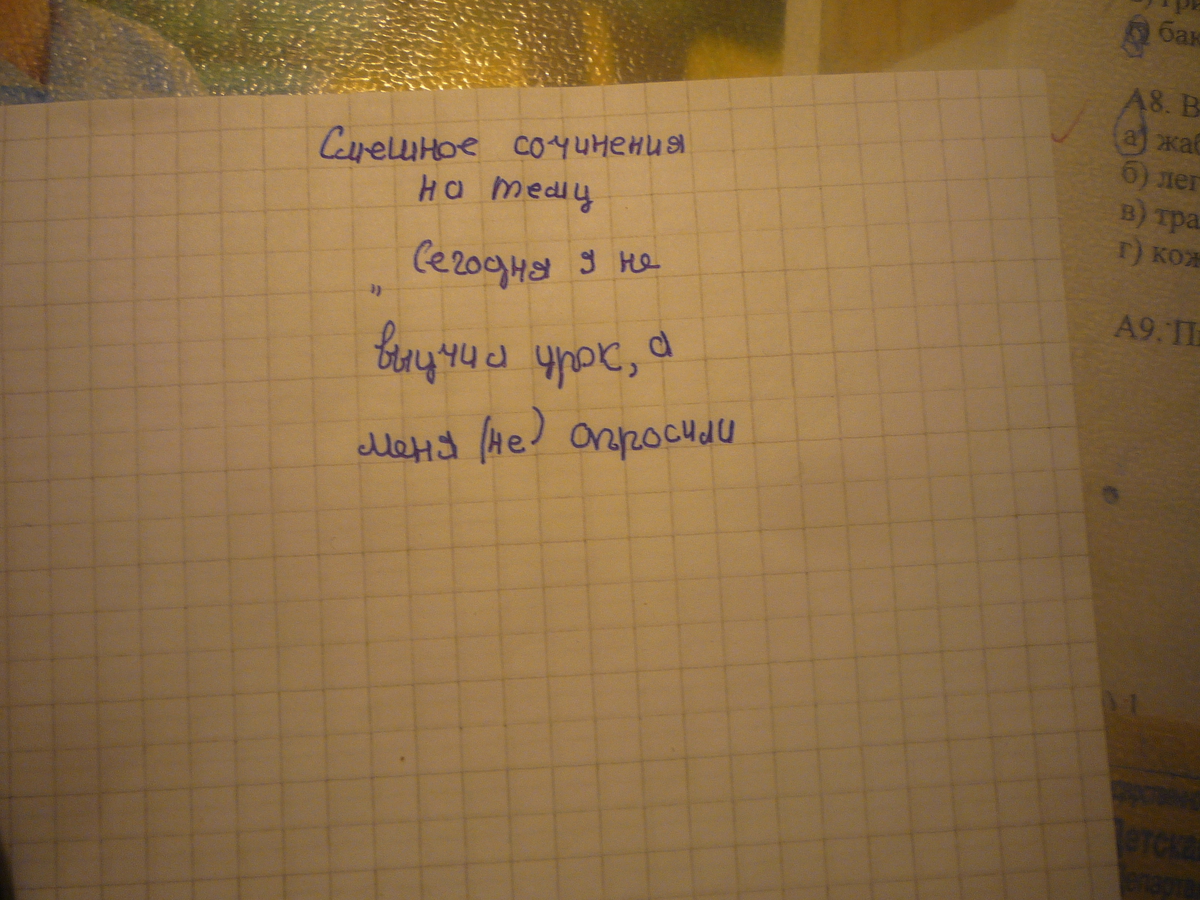 Смешное сочинения
на тему
„ Сегодня я не
выучил урок, а
меня (не) опросили
бак
А8. В
а) жаб
б) лег
в) тра
г) кож
А9. П